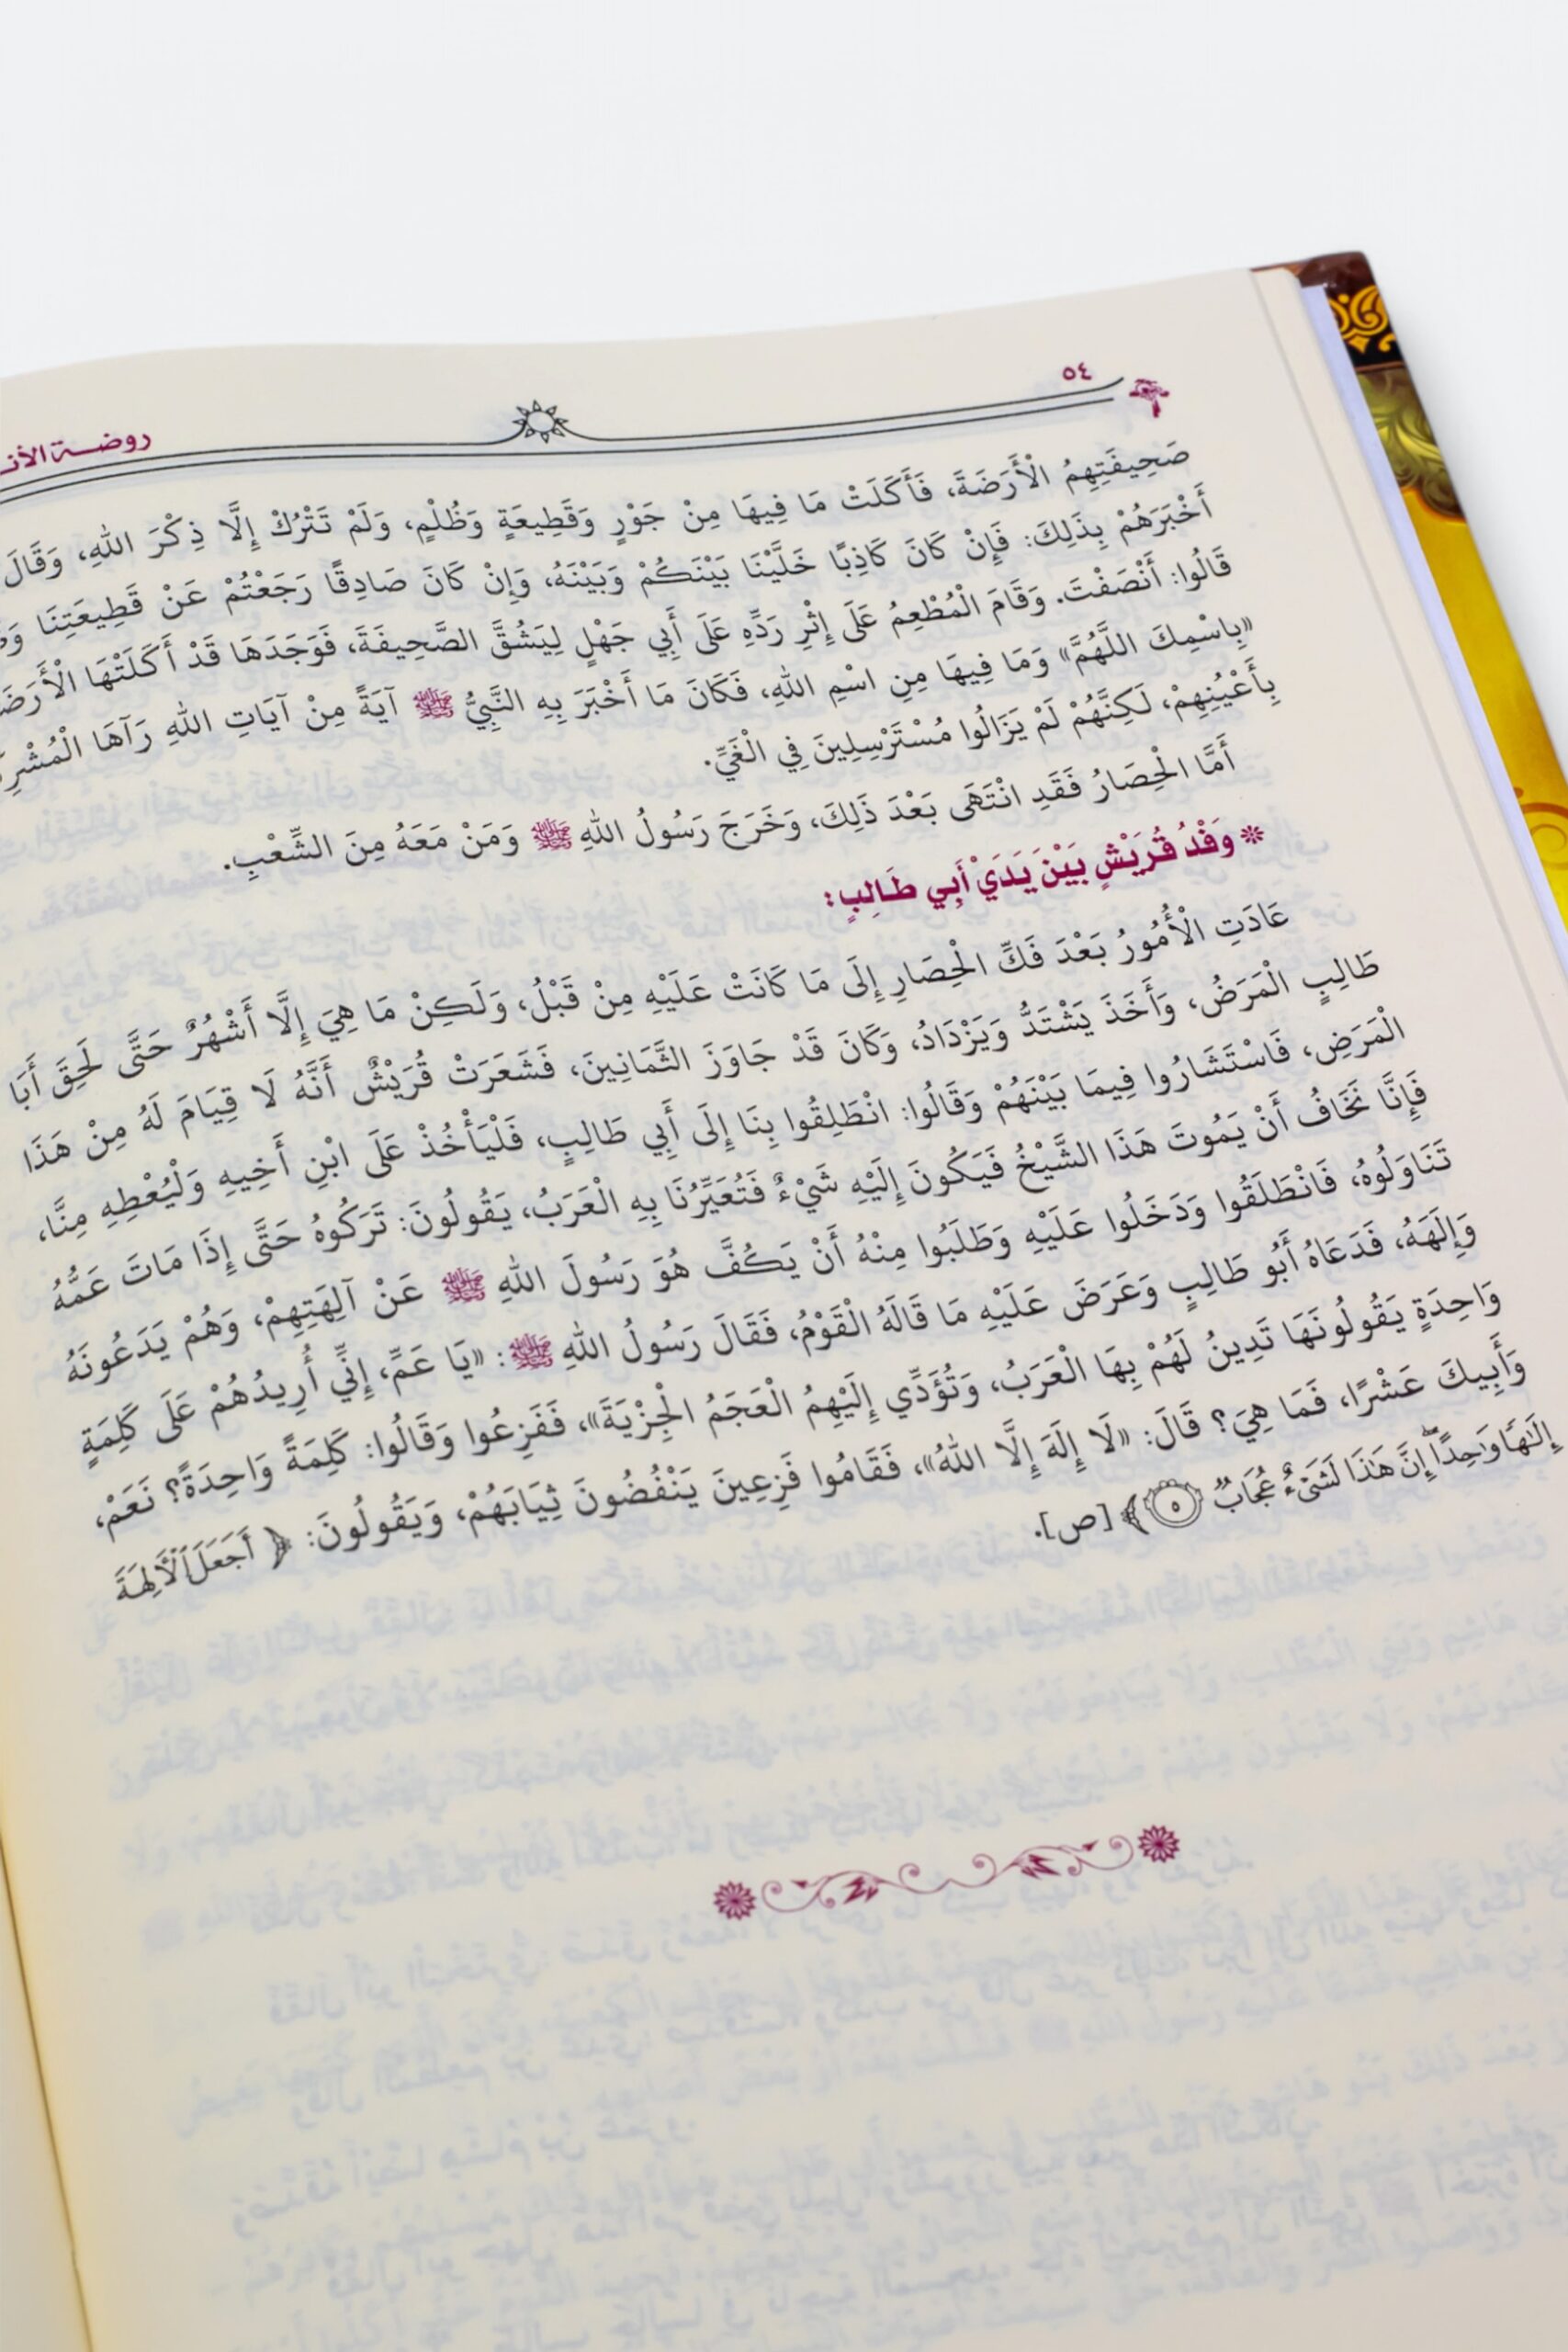 ٥٤
روضة
صَحِيفَتِهِمُ الْأَرَضَةَ، فَأَكَلَتْ مَا فِيهَا مِنْ جَوْرٍ وَقَطِيعَةٍ وَظُلْمٍ، وَلَمْ تَتْرُكْ إِلَّا ذِكْرَ اللهِ، وَقَالَ
أَخْبَرَهُمْ بِذَلِكَ: فَإِنْ كَانَ كَاذِبًا خَلَّيْنَا بَيْنَكُمْ وَبَيْنَهُ، وَإِنْ كَانَ صَادِقًا رَجَعْتُمْ عَنْ قَطِيعَتِنَا
قَالُوا: أَنْصَفْتَ. وَقَامَ الْمُطْعِمُ عَلَى إِثْرِ رَدِّهِ عَلَى أَبِي جَهْلٍ لِيَشُقَّ الصَّحِيفَةَ، فَوَجَدَهَا قَدْ أَكَلَتْهَا
«بِاسْمِكَ اللَّهُمَّ» وَمَا فِيهَا مِنِ اسْمِ اللهِ، فَكَانَ مَا أَخْبَرَ بِهِ النَّبِيُّ ﷺ آيَةً مِنْ آيَاتِ اللهِ رَآهَا
بِأَعْيُنِهِمْ، لَكِنَّهُمْ لَمْ يَزَالُوا مُسْتَرْسِلِينَ فِي الْغَيِّ.
أَمَّا الْحِصَارُ فَقَدِ انْتَهَى بَعْدَ ذَلِكَ، وَخَرَجَ رَسُولُ اللهِ ﷺ وَمَنْ مَعَهُ مِنَ الشِّعْبِ.
* وَفْدُ قُرَيْشٍ بَيْنَ يَدَيْ أَبِي طَالِبٍ:
عَادَتِ الْأُمُورُ بَعْدَ فَكِّ الْحِصَارِ إِلَى مَا كَانَتْ عَلَيْهِ مِنْ قَبْلُ، وَلَكِنْ مَا هِيَ إِلَّا أَشْهُرٌ حَتَّى لَحِقَ أَبَا
طَالِبٍ الْمَرَضُ، وَأَخَذَ يَشْتَدُّ وَيَزْدَادُ، وَكَانَ قَدْ جَاوَزَ الثَّمَانِينَ، فَشَعَرَتْ قُرَيْشٌ أَنَّهُ لَا قِيَامَ لَهُ مِنْ هَذَا
الْمَرَضِ، فَاسْتَشَارُوا فِيمَا بَيْنَهُمْ وَقَالُوا: انْطَلِقُوا بِنَا إِلَى أَبِي طَالِبٍ، فَلْيَأْخُذْ عَلَى ابْنِ أَخِيهِ وَلْيُعْطِهِ مِنَّا،
فَإِنَّا نَخَافُ أَنْ يَمُوتَ هَذَا الشَّيْخُ فَيَكُونَ إِلَيْهِ شَيْءٌ فَتُعَيِّرُنَا بِهِ الْعَرَبُ، يَقُولُونَ: تَرَكُوهُ حَتَّى إِذَا مَاتَ عَمُّهُ
تَنَاوَلُوهُ، فَانْطَلَقُوا وَدَخَلُوا عَلَيْهِ وَطَلَبُوا مِنْهُ أَنْ يَكُفَّ هُوَ رَسُولَ اللهِ ﷺ عَنْ آلِهَتِهِمْ، وَهُمْ يَدَعُونَهُ
وَإِلَهَهُ، فَدَعَاهُ أَبُو طَالِبٍ وَعَرَضَ عَلَيْهِ مَا قَالَهُ الْقَوْمُ، فَقَالَ رَسُولُ اللهِ ﷺ: «يَا عَمِّ، إِنِّي أُرِيدُهُمْ عَلَى كَلِمَةٍ
وَاحِدَةٍ يَقُولُونَهَا تَدِينُ لَهُمْ بِهَا الْعَرَبُ، وَتُؤَدِّي إِلَيْهِمُ الْعَجَمُ الْجِزْيَةَ»، فَفَزِعُوا وَقَالُوا: كَلِمَةً وَاحِدَةً؟ نَعَمْ،
وَأَبِيكَ عَشْرًا، فَمَا هِيَ؟ قَالَ: «لَا إِلَهَ إِلَّا اللهُ»، فَقَامُوا فَزِعِينَ يَنْفُضُونَ ثِيَابَهُمْ، وَيَقُولُونَ: ﴿ أَجَعَلَ ٱلْآلِهَةَ
إِلَٰهًا وَٰحِدًا ۖ إِنَّ هَٰذَا لَشَىْءٌ عُجَابٌ ۝٥ ﴾ [ص].